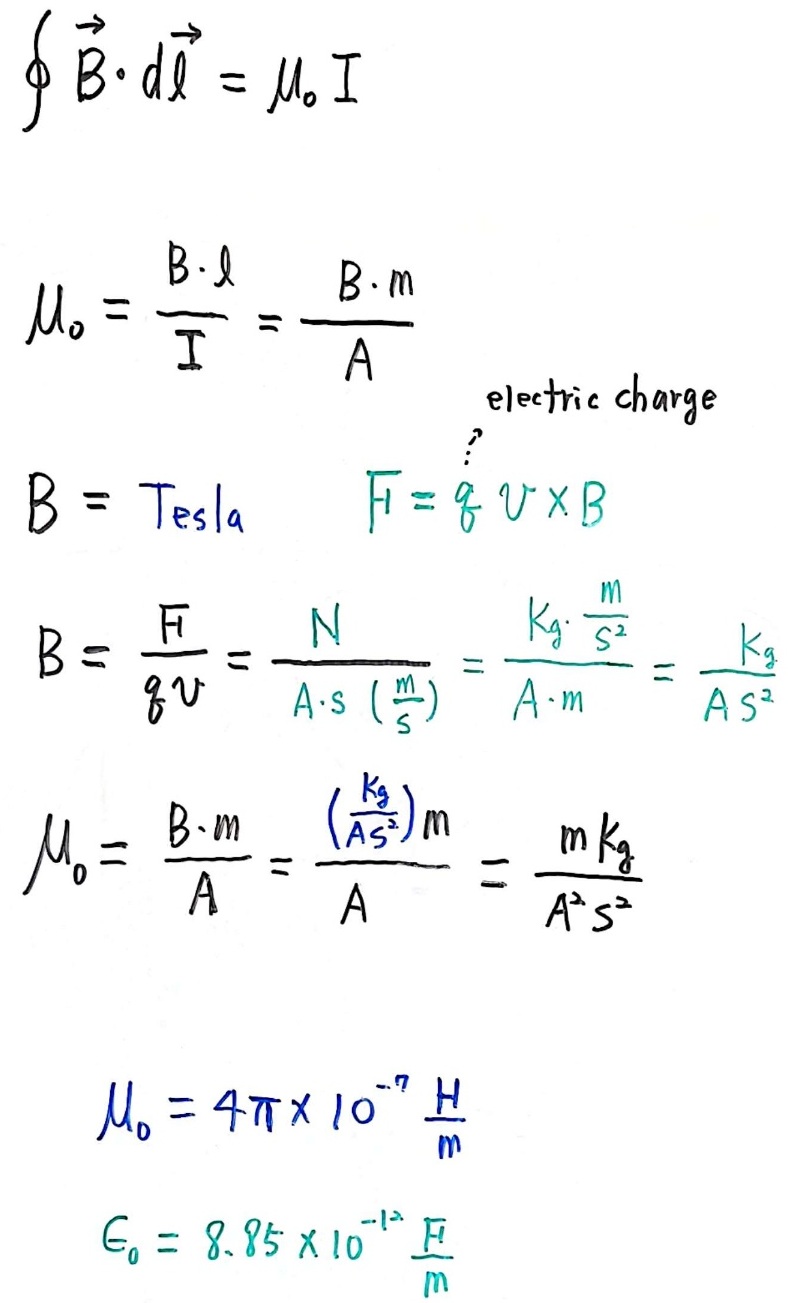 ∮ B⃗ · dl⃗ = μ₀ I
μ₀ = B·l / I = B·m / A
electric charge
B = Tesla F = q v × B
B = F / qv = N / A·s (m/s) = Kg· m/s² / A·m = Kg / A s²
μ₀ = B·m / A = (Kg / A s²) m / A = m Kg / A² s²
μ₀ = 4π × 10⁻⁷ H/m
ϵ₀ = 8.85 × 10⁻¹² F/m